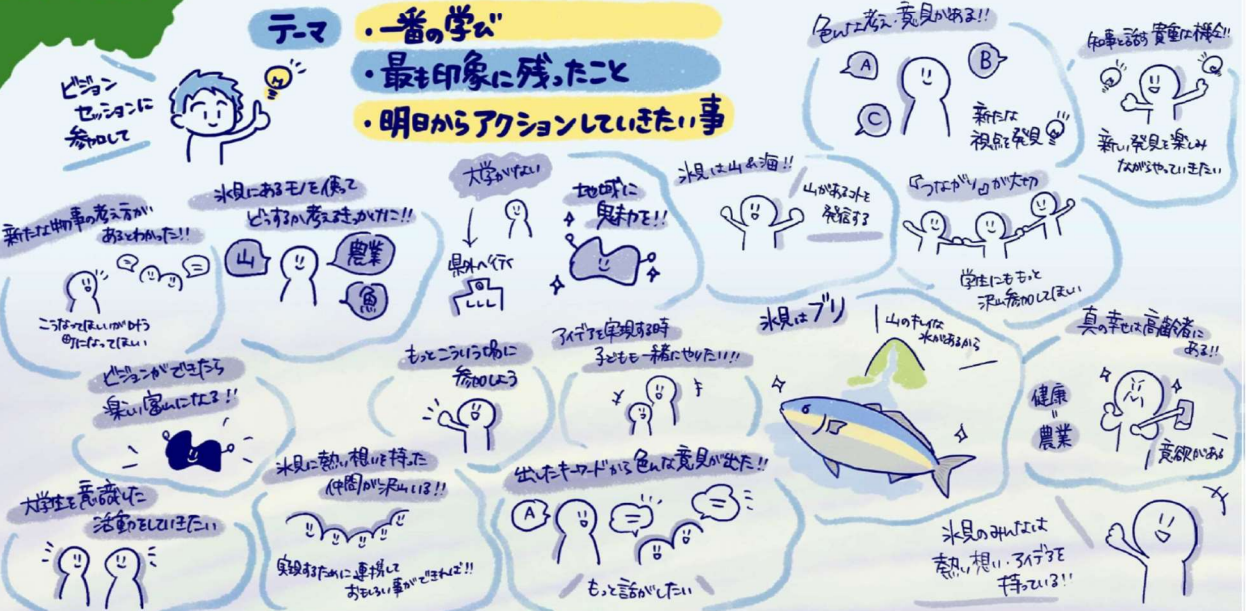 テーマ
・一番の学び
・最も印象に残ったこと
・明日からアクションしていきたい事
ビジョン
セッションに
参加して
色んな考え・意見がある!!
A
B
C
新たな
視点を発見
知事と話す貴重な機会!!
新しい発見を楽しみ
ながらやっていきたい
新たな物事の考え方が
あるとわかった!!
こうなってほしいが叶う
町になってほしい
氷見にあるモノを使って
どうするか考えるきっかけに!!
山
農業
魚
大学がない
県外へ行く
地域に
魅力を!!
氷見は山&海!!
山があるコトを
発信する
『つながり』が大切
学生にももっと
沢山参加してほしい
ビジョンができたら
楽しい富山になる!!
もっとこういう場に
参加しよう
アイデアを実現する時
子どもも一緒にやりたい!!
氷見はブリ
山のキレイな
水があるから
真の幸せは高齢者に
ある!!
健康
=
農業
意欲がある
大学生を意識した
活動をしていきたい
氷見に熱い想いを持った
仲間が沢山いる!!
実現するために連携して
おもしろい事ができれば!!
出したキーワードから色んな意見が出た!!
A
もっと話がしたい
氷見のみんなは
熱い想い・アイデアを
持っている!!